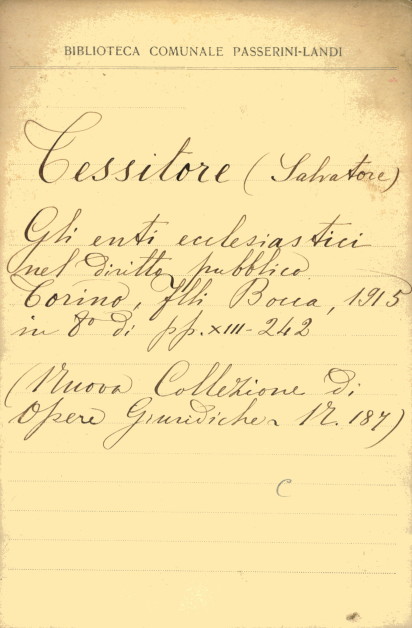 BIBLIOTECA COMUNALE PASSERINI-LANDI
Tessitore (Salvatore)
Gli enti ecclesiastici
nel diritto pubblico
Torino, Flli Bocca, 1915
in 8° di pp. XIII-242
(Nuova Collezione di
Opere Giuridiche N. 187)
C